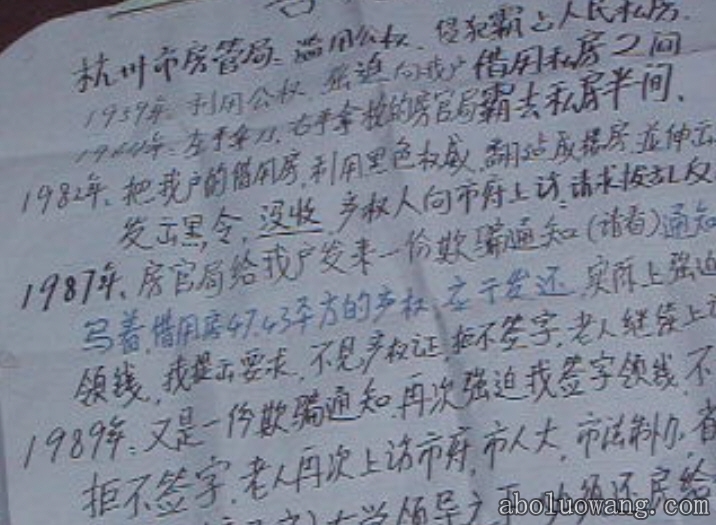 告
杭州市房管局:滥用公权、侵犯霸占人民私房.
1959年.利用公权,强迫向我户借用私房2间
左手拿刀,右手拿枪的房官局霸去私房半间、
1982年、把我户的借用房,利用黑色权威,翻造成楼房,并伸出
发出黑令,没收,产权人向市府上访,请求拨乱反
1987年、房官局给我户发来一份欺骗通知(请看)通知
写着,借用房47.43平方的产权,应予发还,实际上强迫
领钱,我提出要求,不见产权证,拒不签字,老人继续上访
1989年:又是一份欺骗通知,再次强迫我签字领钱,不
拒不签字,老人再次上访市府,市人大,市法制办,省
领导之下 还房给
aboluowang.com